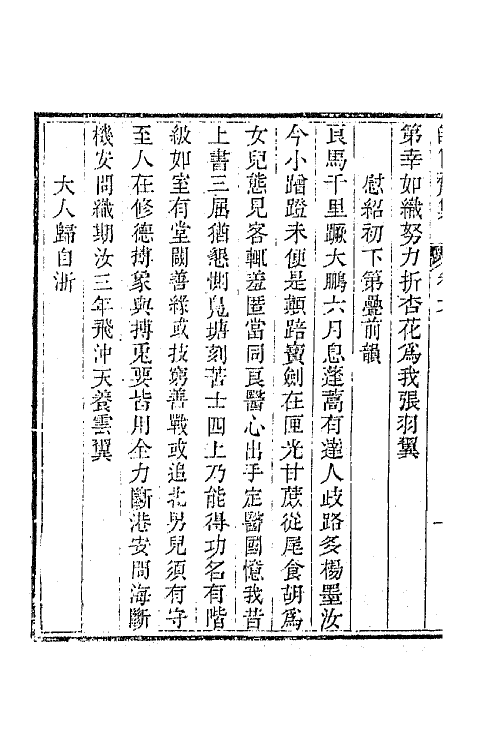 第幸如織努力折杏花為我張羽翼
慰紹初下第疊前韻
良馬千里蹶大鵬六月息蓬蒿有達人歧路多楊墨汝
今小蹭蹬未便是顛踣寶劍在匣光甘蔗從尾食胡為
女兒態見客輒羞匿當同良醫心出手定醫國憶我昔
上書三屈猶懇惻鬼塘刻苦士四上乃能得功名有階
級如室有堂閾善緣或技窮善戰或追北男兒須有守
至人在修德搏象與搏兎要皆用全力斷港安問海斷
機安問織期汝三年飛沖天養雲翼
大人歸自浙